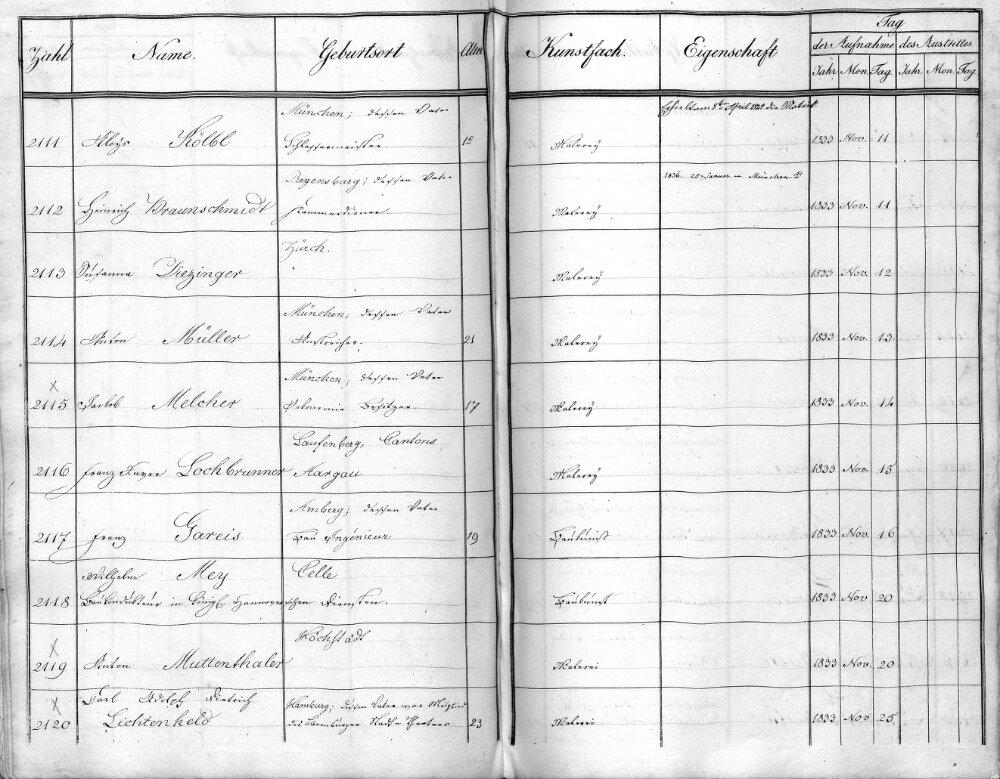 Zahl Name. Geburtsort Alter Kunstfach. Eigenschaft Tag
der Aufnahme des Austrittes
Jahr Mon. Tag. Jahr. Mon. Tag.
München; dessen Vater
2111 Aloys Kölbl Schlossermeister 15 Malerey 1833 Nov. 11
Regensburg; dessen Vater 1836 25 Januar in München †
2112 Heinrich Braunschmidt Kammerdiener 1833 Nov. 11
Malerey
Zürch.
2113 Susanna Diezinger Malerey 1833 Nov. 12
München; dessen Vater
2114 Anton Müller Anstreicher. 21 Malerey 1833 Nov. 13
München; dessen Vater
2115 Jacob Melcher Besitzer 17 Malerey 1833 Nov. 14
Laufenberg, Cantons
2116 Franz Xaver Lochbrunner Aargau Malerey 1833 Nov. 15
Amberg; dessen Vater
2117 Franz Gareis Bau Ingénieur 19 Baukunst 1833 Nov. 16
Wilhelm Mey Celle
2118 Baukondukteur in königl. Hannoverschen Diensten. Baukunst 1833 Nov 20
Höchstädt
2119 Anton Muttenthaler Malerei 1833 Nov. 20
Carl Adolph Dietrich Hamburg; dessen Vater war Mitglied
2120 Lichtenheld des Hamburger Stadt-Theaters 23 Malerei 1833 Nov 25